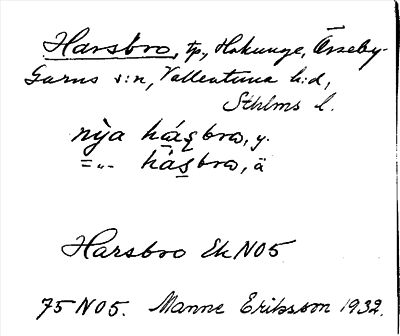 Harsbro, tp., Hakunge, Össeby-
Garns s:n, Vallentuna h:d,
Sthlms l.
nỳa há̱s̨bro, y.
="- há̱s̱bro, ä
Harsbro Ek NO5
75 NO5. Manne Eriksson 1932.